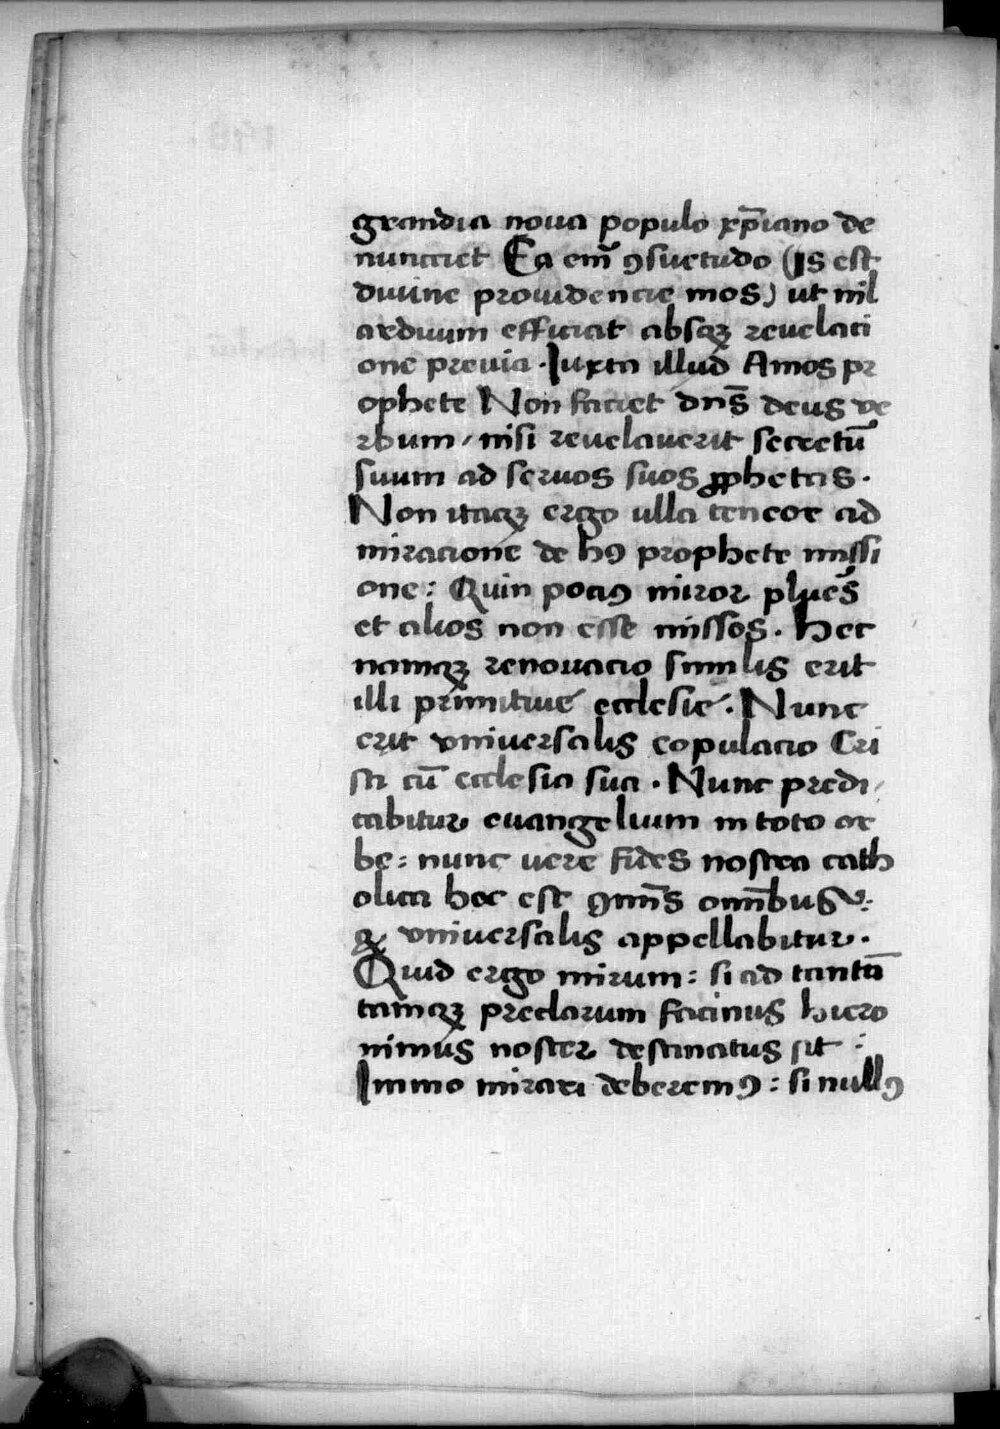 grandia noua populo xp̄iano de
nunciet Ea em̄ ꝯsuetudo (is est
diuine prouidencie mos) ut nil
arduum efficiat absqꝫ reuelaci
one preuia . Iuxta illud Amos pr
ophete Non faciet dn̄s deus ve
rbum / nisi reuelauerit secretū
suum ad seruos suos ꝓphetas .
Non itaqꝫ ergo ulla teneor ad
miracione de hꝰ prophete missi
one : Quin pociꝰ miror plures
et alios non esse missos . Hec
namqꝫ renouacio similis erit
illi primitiue ecclesie . Nunc
erit vniuersalis copulacio Cri
sti cū ecclesia sua . Nunc predi /
cabitur euangelium in toto or
be : nunc vere fides nostra cath
olica hoc est ꝯmn̄s omn̄ibus v :
qꝫ vniuersalis appellabitur .
Quid ergo mirum : si ad tantū
tamqꝫ preclarum facinus hiero
nimus noster destinatus sit :
Immo mirari deberemꝰ : si nullꝰ